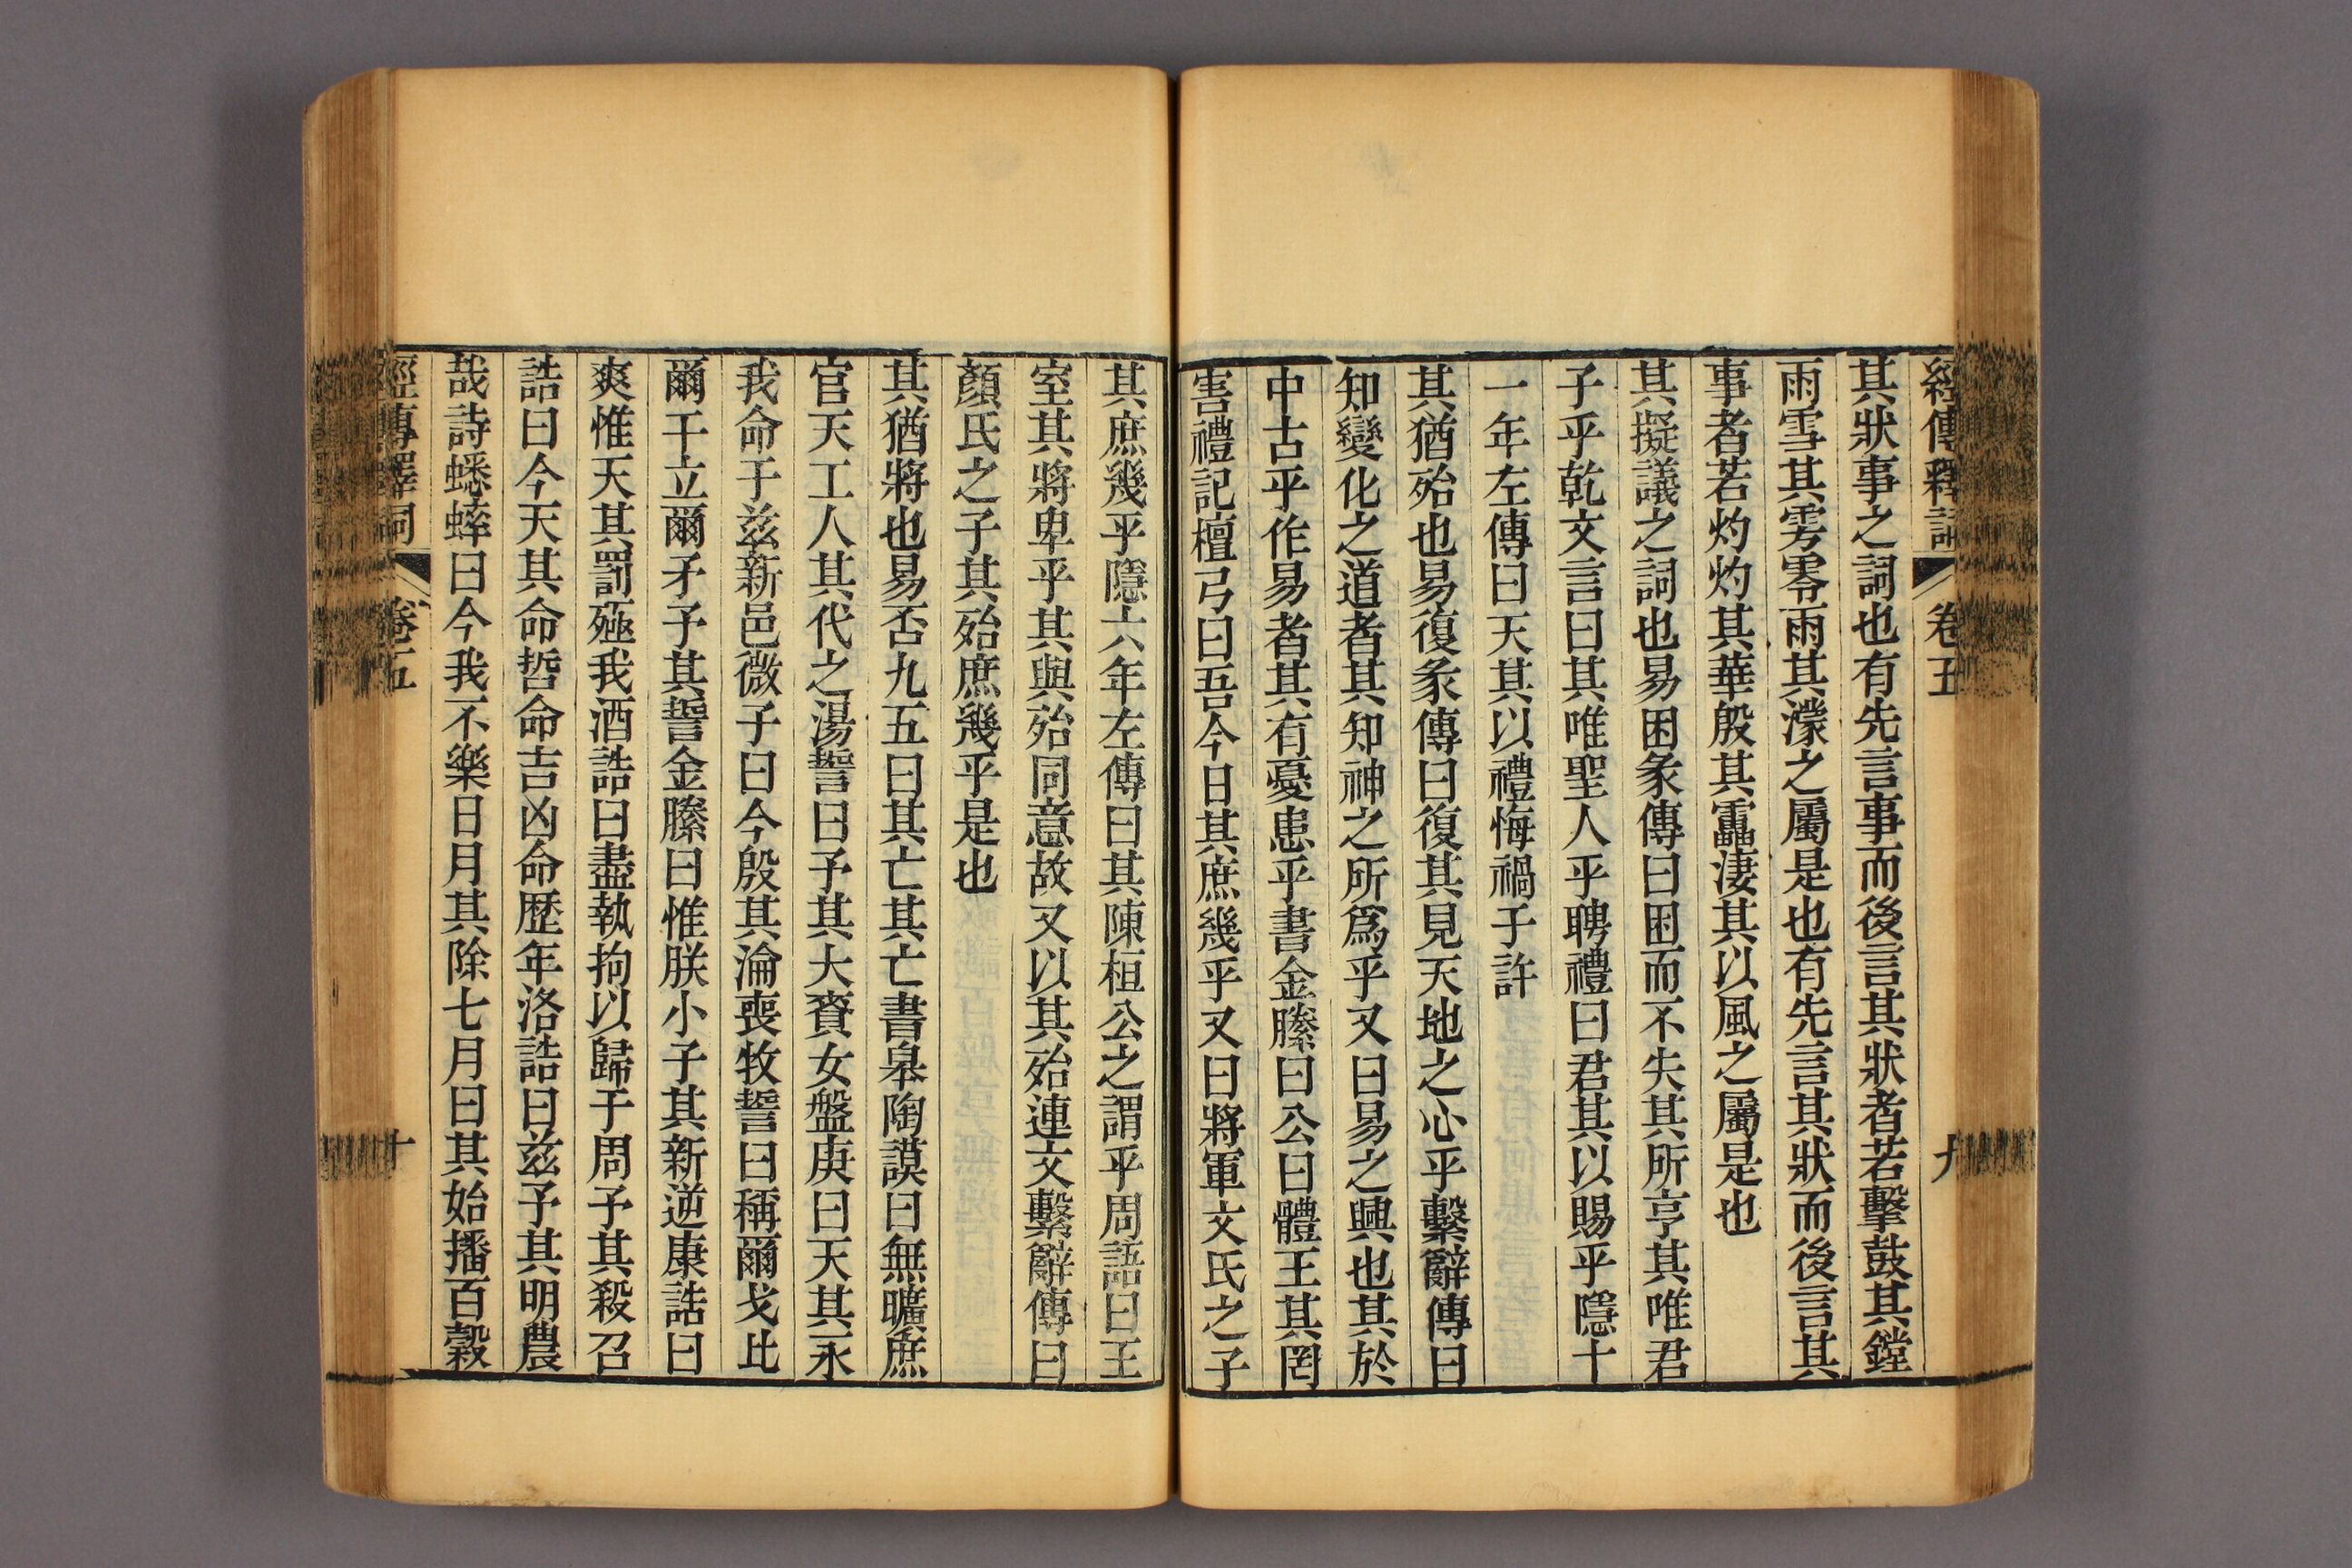 經傳釋詞 卷五 九
其狀事之詞也有先言事而後言其狀者若擊鼓其鏜
雨雪其雱零雨其濛之屬是也有先言其狀而後言其
事者若灼灼其華殷其靁淒其以風之屬是也
其擬議之詞也易困彖傳曰困而不失其所亨其唯君
子乎乾文言曰其唯聖人乎聘禮曰君其以賜乎隱十
一年左傳曰天其以禮悔禍于許
其猶殆也易復彖傳曰復其見天地之心乎繫辭傳曰
知變化之道者其知神之所爲乎又曰易之興也其於
中古乎作易者其有憂患乎書金縢曰公曰體王其罔
害禮記檀弓曰吾今日其庶幾乎又曰將軍文氏之子
其庶幾乎隱六年左傳曰其陳桓公之謂乎周語曰王
室其將卑乎其與殆同意故又以其殆連文繫辭傳曰
顏氏之子其殆庶幾乎是也
其猶將也易否九五曰其亡其亡書皋陶謨曰無曠庶
官天工人其代之湯誓曰予其大賚女盤庚曰天其永
我命于兹新邑微子曰今殷其淪喪牧誓曰稱爾戈比
爾干立爾矛予其誓金縢曰惟朕小子其新逆康誥曰
爽惟天其罰殛我酒誥曰盡執拘以歸于周予其殺召
誥曰今天其命哲命吉凶命歷年洛誥曰兹予其明農
哉詩蟋蟀曰今我不樂日月其除七月曰其始播百穀
經傳釋詞 卷五 十